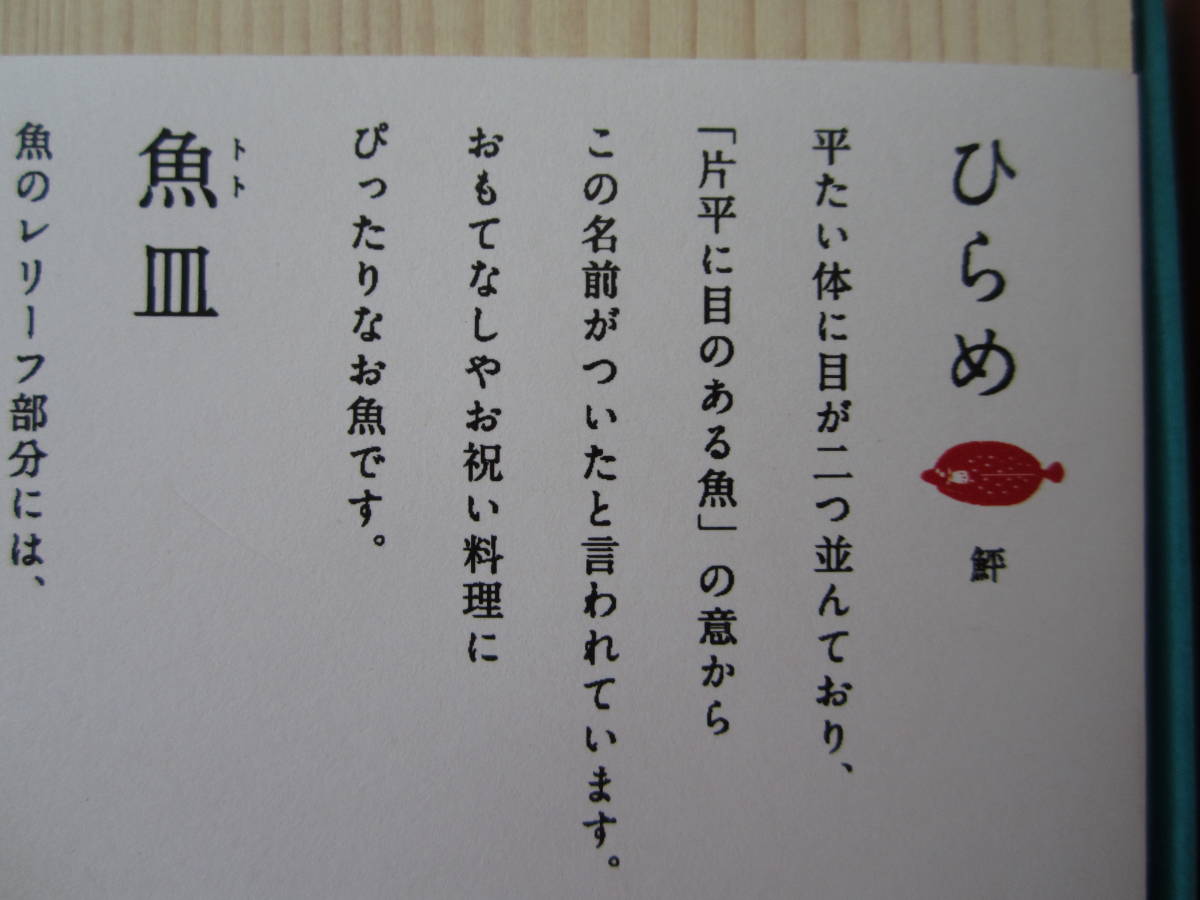 ひらめ 鮃
平たい体に目が二つ並んており、
「片平に目のある魚」の意から
この名前がついたと言われています。
おもてなしやお祝い料理に
ぴったりなお魚です。
トト
魚皿
魚のレリーフ部分には、